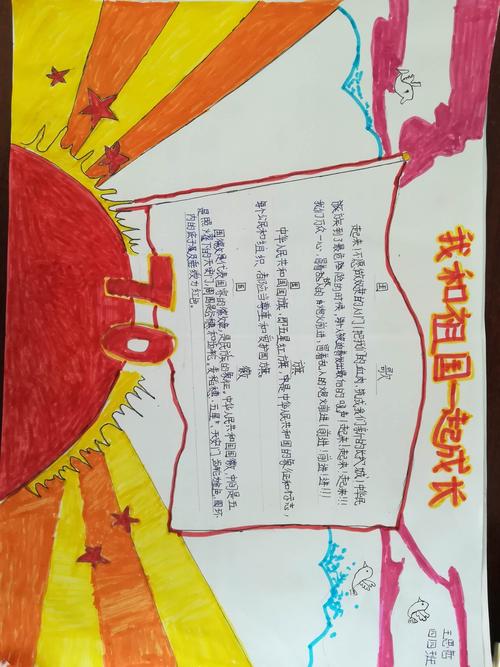 我和祖国一起成长
国 歌
起来!不愿做奴隶的人们!把我们的血肉,筑成我们新的长城!中华民
族到了最危险的时候,每个人被迫着发出最后的吼声!起来!起来!起来!!!
我们万众一心,冒着敌人的炮火前进,冒着敌人的炮火前进!前进!前进!进!!!
国 旗
中华人民共和国国旗,即五星红旗,中是中华人民共和国的象征和标志,
每个公民和组织,都应当尊重和爱护国旗。
国 徽
国徽是代表国家的徽章,是民族的象征。中华人民共和国国徽,中间是五
星照耀下的天安门,周围是谷穗和齿轮。麦稻穗、五星、天安门、齿轮为金色,圆环
内的底子及垂绶为红色。
70
王思哲
四四班